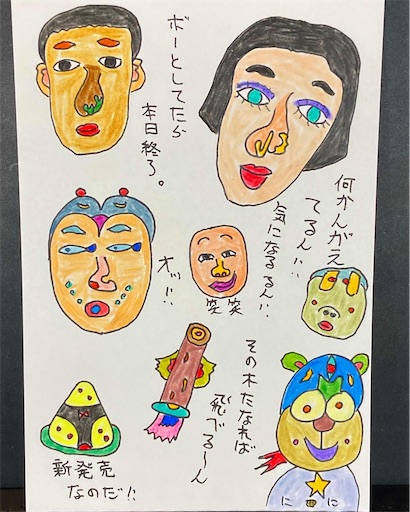 ボーとしてたら
本日終了。
何かんがえ
てるん!!
気になるるん!!
オッ!!
笑 笑
その木になれば
飛べるーん
新発売
なのだ!!